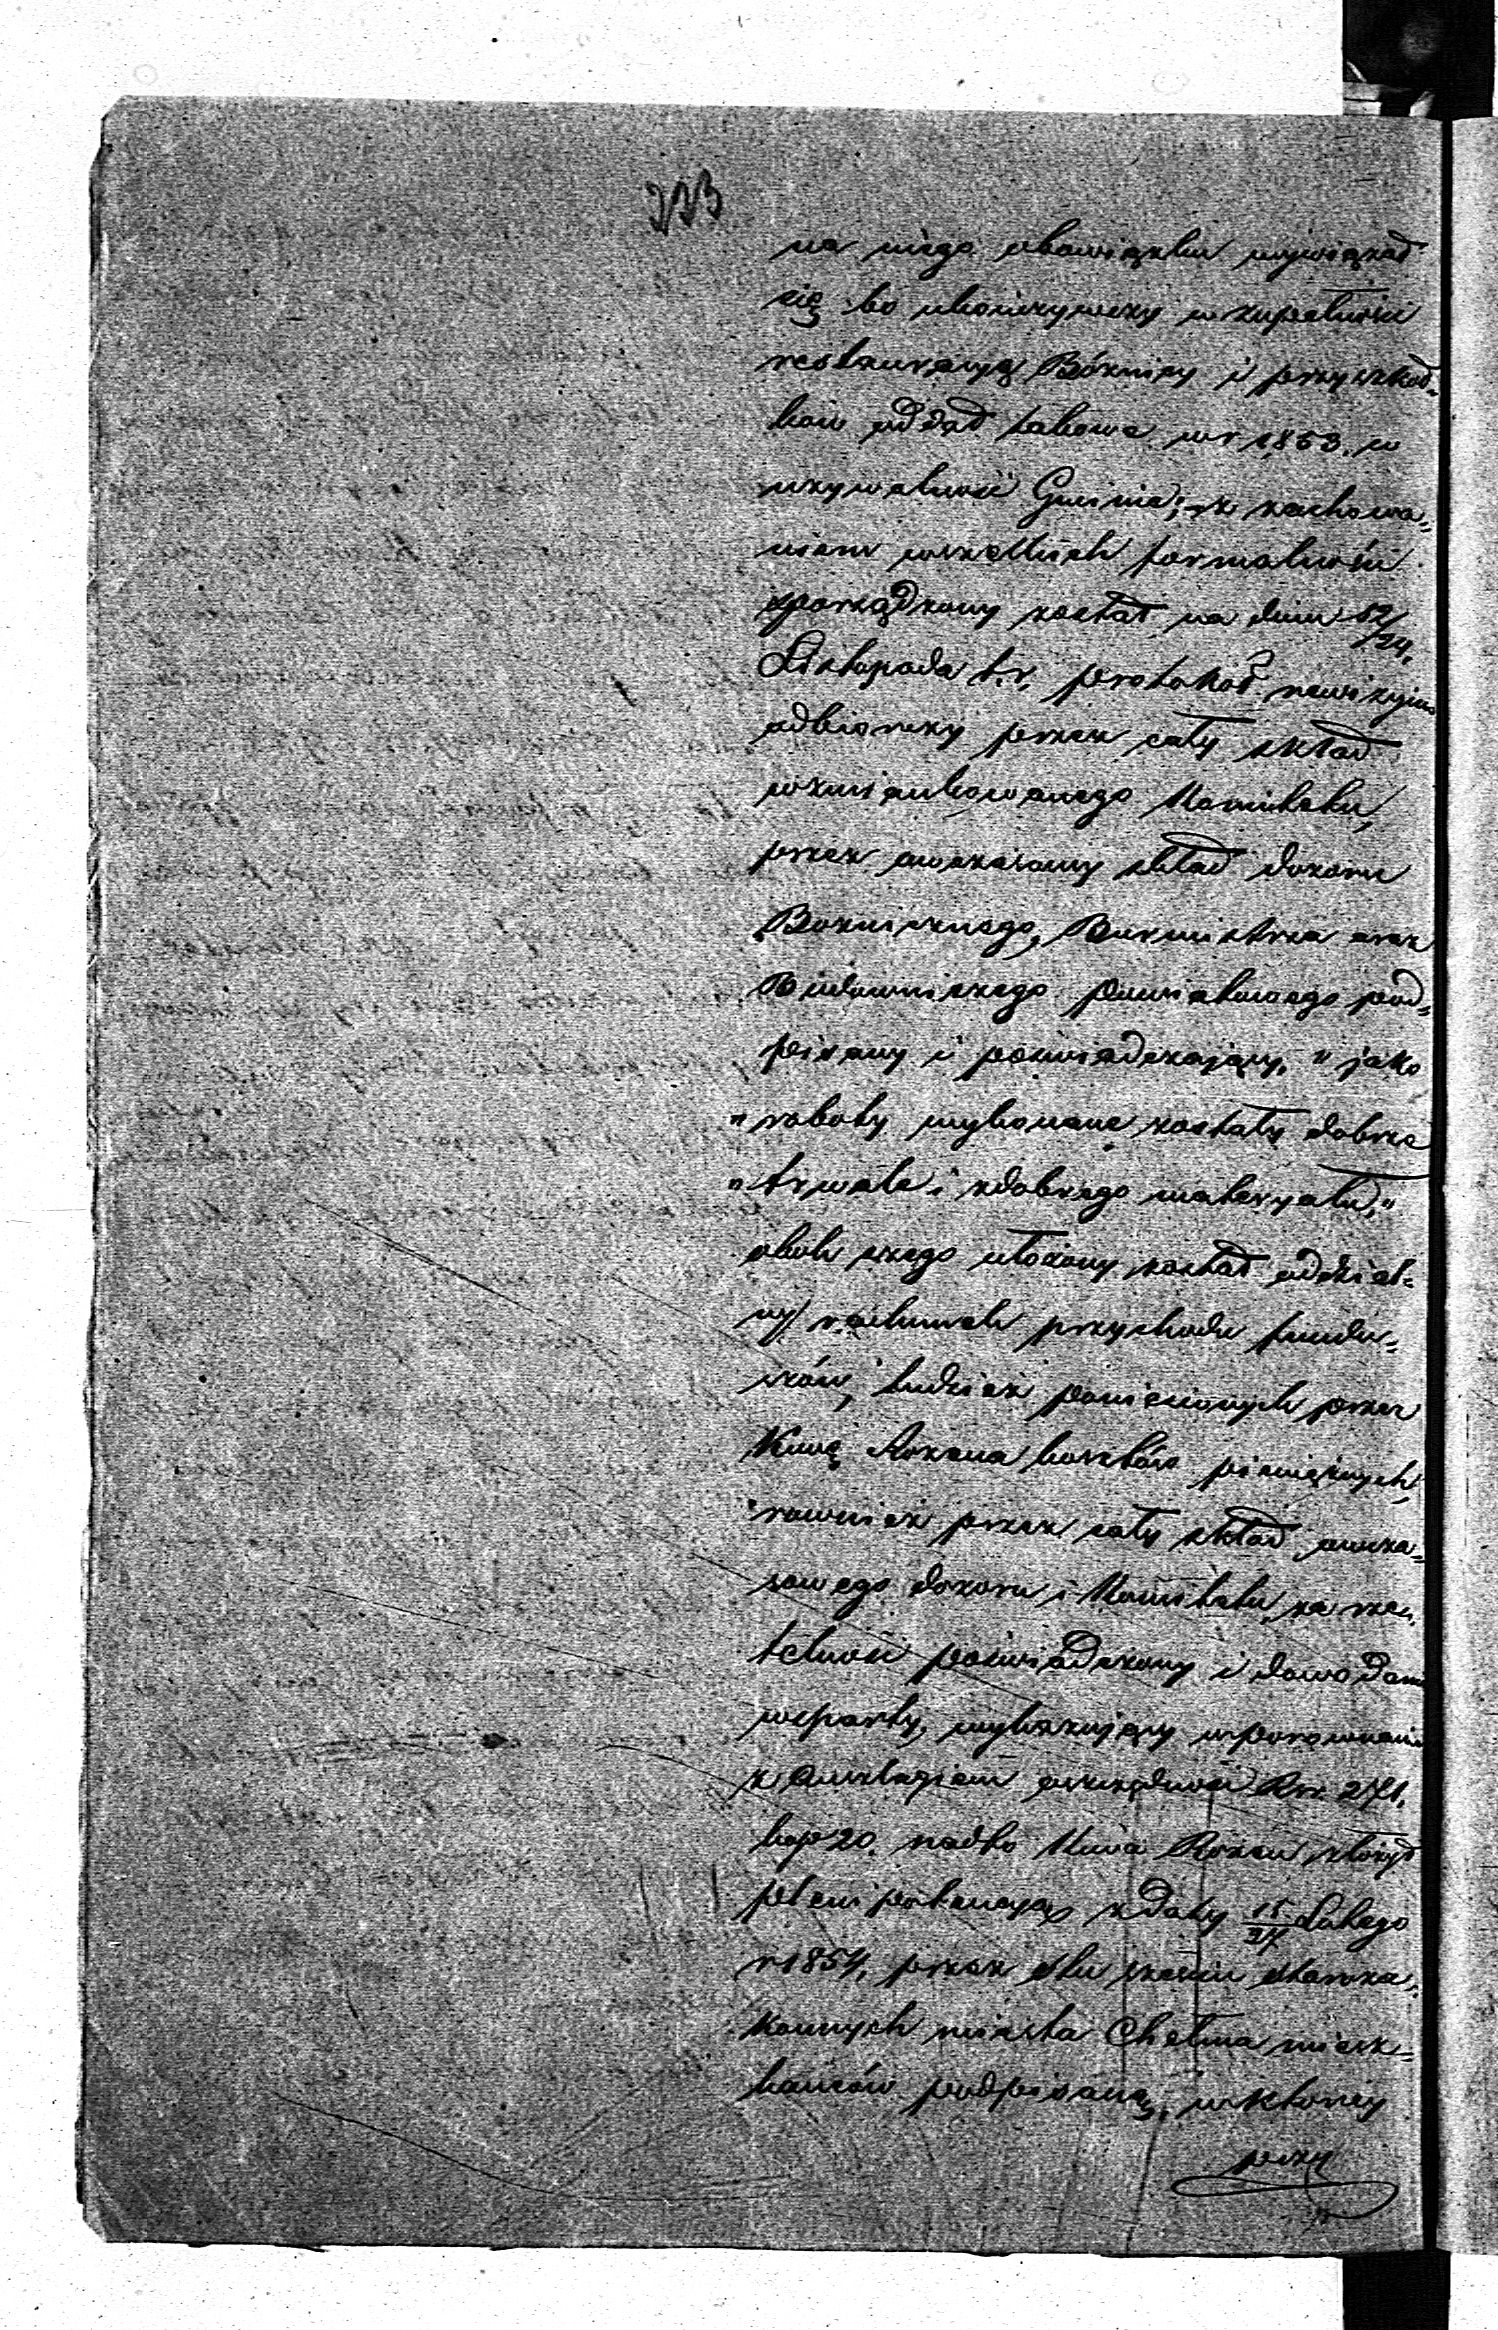 233
na niego obowiązku wywiązał
się bo ukończywszy w zupełności
restauracyą Bóżnicy i przyszkol¬
ków oddał takowe w r 1853. w
używalność Gminie; z zachowa¬
niem wszelkich formalności
sporządzony został na dniu 12/24.
Listopada t.r. protokół rewizyjno
odbiorczy przez cały skład
wzmiankowanego Komitetu,
przez ówczesowy skład dozoru
Bożnicznego, Burmistrza oraz
Budowniczego Powiatowego pod¬
pisany i poświadczający, " jako
" roboty wykonane zostały dobrze
" trwale i z dobrego materyału,"
obok czego ułożony został oddziel¬
ny rachunek przychodu fundu¬
szów, tudzież poniesionych przez
Kiwę Rozena kosztów pieniężnych,
rownież przez cały skład owcza¬
sowego dozoru i Komitetu za rze¬
telność poświadczony i dowodami
wsparty, wykazujący w porownaniu
z Anszlagiem oszczędności Rsr. 271.
kop 20. nadto Kiwa Rozen złożył
plenipotencyą z daty 15/27 Lutego
r 1854, przez stu sześciu Staroza¬
konnych miasta Chełma miesz¬
kańców podpisaną, w ktorey
przy